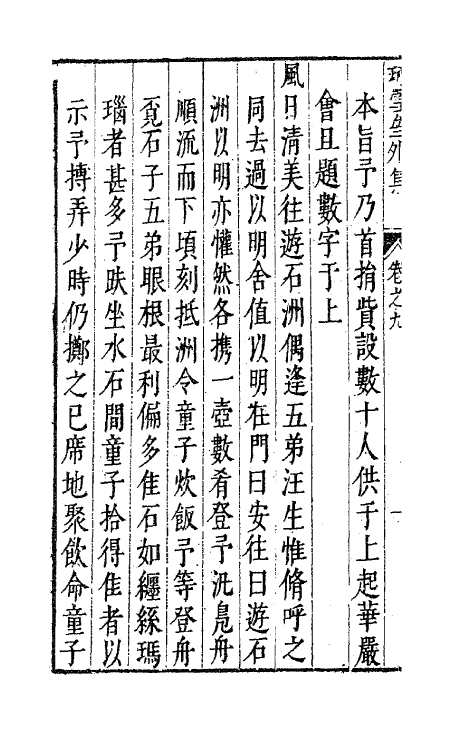 珂雪齋外集 卷之九
本旨予乃首捐貲設數十人供于上起華嚴
會且題數字于上
風日清美往遊石洲偶逢五弟汪生惟脩呼之
同去過以明舍值以明在門曰安往曰遊石
洲以明亦懽然各携一壺數肴登予汎鳧舟
順流而下頃刻抵洲令童子炊飯予等登舟
覔石子五弟眼根最利偏多佳石如纏絲瑪
瑙者甚多予趺坐水石間童子拾得佳者以
示予摶弄少時仍擲之已席地聚飲命童子